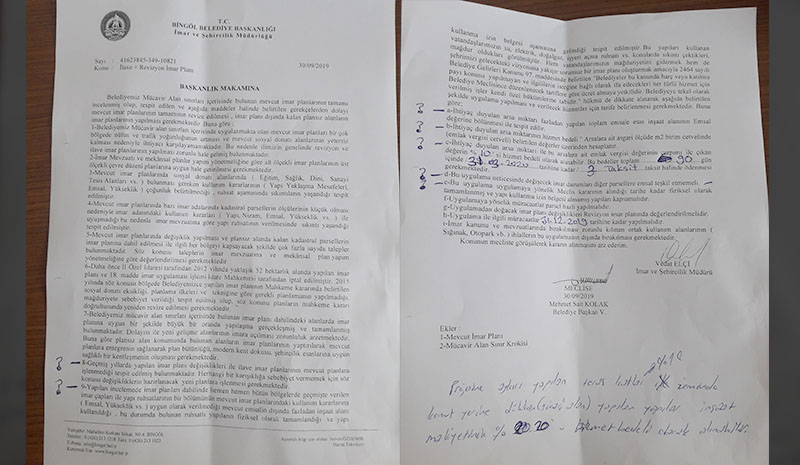 T.C.
BİNGÖL BELEDİYE BAŞKANLIĞI
İmar ve Şehircilik Müdürlüğü
Sayı : 41623845-349-10821
30/09/2019
Konu : İlave + Revizyon İmar Planı
BAŞKANLIK MAKAMINA
Belediyemiz Mücavir Alan sınırları içerisinde bulunan mevcut imar planlarının tamamı
incelenmiş olup, tespit edilen ve aşağıda maddeler halinde belirtilen gerekçelerden dolayı
mevcut imar planlarının tamamının revize edilmesi , imar planı dışında kalan plansız alanların
imar planlarının yapılması gerekmektedir. Buna göre ;
1-Belediyemiz Mücavir Alan sınırları içerisinde uygulamakta olan imar planları bir çok
bölgede nüfus ve trafik yoğunluğunun artması ve mevcut sosyal donatı alanlarının yetersiz
kalması nedeniyle ihtiyacı karşılayamamaktadır. Bu nedenle ilimizin genelinde revizyon ve
ilave imar planlarının yapılması zorunlu hale gelmiş bulunmaktadır.
2-İmar Mevzuatı ve mekânsal planlar yapım yönetmeliğine göre alt ölçekli imar planlarının üst
ölçekli çevre düzeni planlarına uygun hale getirilmesi gerekmektedir.
3-Mevcut imar planlarında sosyal donatı alanlarında ( Eğitim, Sağlık, Dini, Sanayi
Tesis Alanları vs. ) bulunması gereken kullanım kararlarının ( Yapı Yaklaşma Mesafeleri,
Emsal, Yükseklik ) çoğunda belirtilmediği , ruhsat aşamasında sıkıntıların yaşandığı tespit
edilmiştir.
4-Mevcut imar planlarında bazı imar adalarında kadastral parsellerin ölçülerinin küçük olması
nedeniyle imar adasındaki kullanım kararları ( Yapı, Nizam, Emsal, Yükseklik, vs. ) ile
uyuşmadığı bu nedenle imar mevzuatına göre yapı ruhsatının verilmesinde sıkıntı yaşandığı
tespit edilmiştir.
5-Mevcut imar planlarında değişiklik yapılması ve plansız alanda kalan kadastral parsellerin
imar planına dahil edilmesi ile ilgili her bölgeyi kapsayacak şekilde çok fazla sayıda talepler
bulunmaktadır. Söz konusu taleplerin imar mevzuatına ve mekânsal plan yapım
yönetmeliğine göre değerlendirilmesi gerekmektedir.
6-Daha önce İl Özel İdaresi tarafından 2012 yılında yaklaşık 52 hektarlık alanda yapılan imar
planı ve 18. madde imar uygulaması işlemi İdare Mahkemesi tarafından iptal edilmiştir. 2015
yılında söz konusu bölgede Belediyemizce yapılan imar planının Mahkeme Kararında belirtilen
sosyal donatı eksikliği, planlama ilkeleri ve tekniğine göre gerekli planlamanın yapılmadığı,
mağduriyete sebebiyet verildiği tespit edilmiş olup, söz konusu planların mahkeme kararı
doğrultusunda yeniden revize edilmesi gerekmektedir.
7-Belediyemiz mücavir alan sınırları içerisinde bulunan imar planı dahilindeki alanlarda imar
planına uygun bir şekilde büyük bir oranda yapılaşma gerçekleşmiş ve tamamlanmış
bulunmaktadır. Dolayısı ile yeni gelişme alanlarının imara açılması zorunluluk arzetmektedir.
Buna göre plansız alan konumunda bulunan alanların imar planlarının yaptırılarak, mevcut
planlara entegrenin sağlanarak plan bütünlüğü, modern kent dokusu, şehircilik esaslarına uygun
sağlıklı bir kentleşmenin oluşması gerekmektedir.
? 8-Geçmiş yıllarda yapılan imar planı değişiklikleri ile ilave imar planlarının mevcut planlara
işlenmediği tespit edilmiş bulunmaktadır. Herhangi bir karışıklığa sebebiyet vermemek için söz
konusu değişikliklerin hazırlanacak yeni planlara işlenmesi gerekmektedir.
? 9-Yapılan incelemede imar planları dahilinde hemen hemen bütün bölgelerde geçmişte verilen
imar çapları ile yapı ruhsatlarının bir bölümünün mevcut imar planlarındaki kullanım kararlarına
( Emsal, Yükseklik vs. ) uygun olarak verilmediği mevcut emsalin dışında fazladan inşaat alanı
kullanıldığı , bu durumda bulunan ruhsatlı yapıların fiziksel olarak tamamlandığı, ve yapı
kullanma izin belgesi aşamasına gelindiği tespit edilmiştir. Bu yapıları kullanan
şehrimizi gelecekteki vizyonuna yakışır sorunsuz bir imar planı oluşturmak amacıyla 2464 sayılı
Belediye Gelirleri Kanunu 97. maddesinde belirtilen "Belediyeler bu kanunda harç veya katılma
payı konusu yapılmayan ve ilgililerin isteğine bağlı olarak ifa edecekleri her türlü hizmet için
Belediye Meclisince düzenlenecek tarifelere göre ücret almaya yetkilidir. Belediyeye tekel olarak
verilmiş işler kendi özel hükümlerine tabidir." hükmü de dikkate alınarak aşağıda belirtilen
şekilde uygulama yapılması ve verilecek hizmetler için tarife belirlenmesi gerekmektedir. Buna
göre;
? a-İhtiyaç duyulan arsa miktarı fazladan yapılan toplam emsale esas inşaat alanının Emsal
değerine bölünmesi ile tespit edilir.
? b-İhtiyaç duyulan arsa miktarının hizmet bedeli " Arsalara ait asgari ölçüde m2 birim cetvelinde
(emlak vergisi cerveli) belirtilen değerler üzerinden hesaplanır.
? c-İhtiyaç duyulan arsa miktarı ile bu arsalara ait emlak vergisi değerinin çarpılması ile çıkan
değerin % 10 'i hizmet bedeli olarak alınabilir. Bu bedeller toplam 90 gün
içinde 31-03-2020 tarihine kadar 3 Taksit halinde ödenmesi
gerekmektedir.
? d-Bu uygulama neticesinde değişecek imar durumları diğer parsellere emsal teşkil etmemeli
? e-Bu uygulamaya yönelik, Meclis kararının alındığı tarihe kadar fiziksel olarak
tamamlanmış ve yapı kullanma izin belgesi almamış yapıları kapsamalıdır.
f-Uygulamaya yönelik müracaatlar parsel bazlı yapılmalıdır.
g-Uygulamadan doğacak imar planı değişiklikleri Revizyon imar planında değerlendirilmelidir.
h-Uygulama ile ilgili müracaatlar 31.12.2019 tarihine kadar yapılmalıdır.
ı-İmar kanunu ve mevzuatlarında bırakılması zorunlu kılınan ortak kullanım alanlarının (
Sığınak, Otopark vb. ) ihlallerin bu uygulamanın dışında bırakılması gerekmektedir.
Konunun mecliste görüşülerek karara alınmasını arz ederim.
Vedat ELÇİ
İmar ve Şehircilik Müdürü
MECLİSE
30/09/2019
Mehmet Sait KOLAK
Belediye Başkan V.
Ekler :
1-Mevcut İmar Planı
2-Mücavir Alan Sınır Krokisi
Projeye aykırı yapılan teras katlar
konut yerine dükkan yapılan yapılar inşaat
maliyetinin % 20 hizmet bedeli olarak alınabilir.